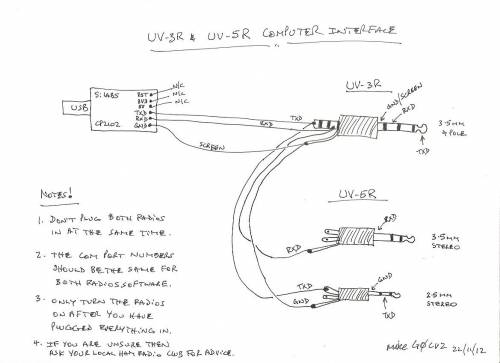 UV-3R & UV-5R COMPUTER INTERFACE
UV-3R
USB
Si LABS
CP2102
RST
3V3
5V
TXD
RXD
GND
N/C
N/C
N/C
TXD
RXD
SCREEN
GND/SCREEN
RXD
TXD
3.5mm
4 POLE
UV-5R
RXD
RXD
3.5mm
STEREO
TXD
GND
GND
TXD
2.5mm
STEREO
NOTES!
1. DON'T PLUG BOTH RADIOS
IN AT THE SAME TIME.
2. THE COM PORT NUMBERS
SHOULD BE THE SAME FOR
BOTH RADIOS SOFTWARE.
3. ONLY TURN THE RADIOS
ON AFTER YOU HAVE
PLUGGED EVERYTHING IN.
4. IF YOU ARE UNSURE THEN
ASK YOUR LOCAL HAM RADIO CLUB FOR ADVICE.
22/11/12